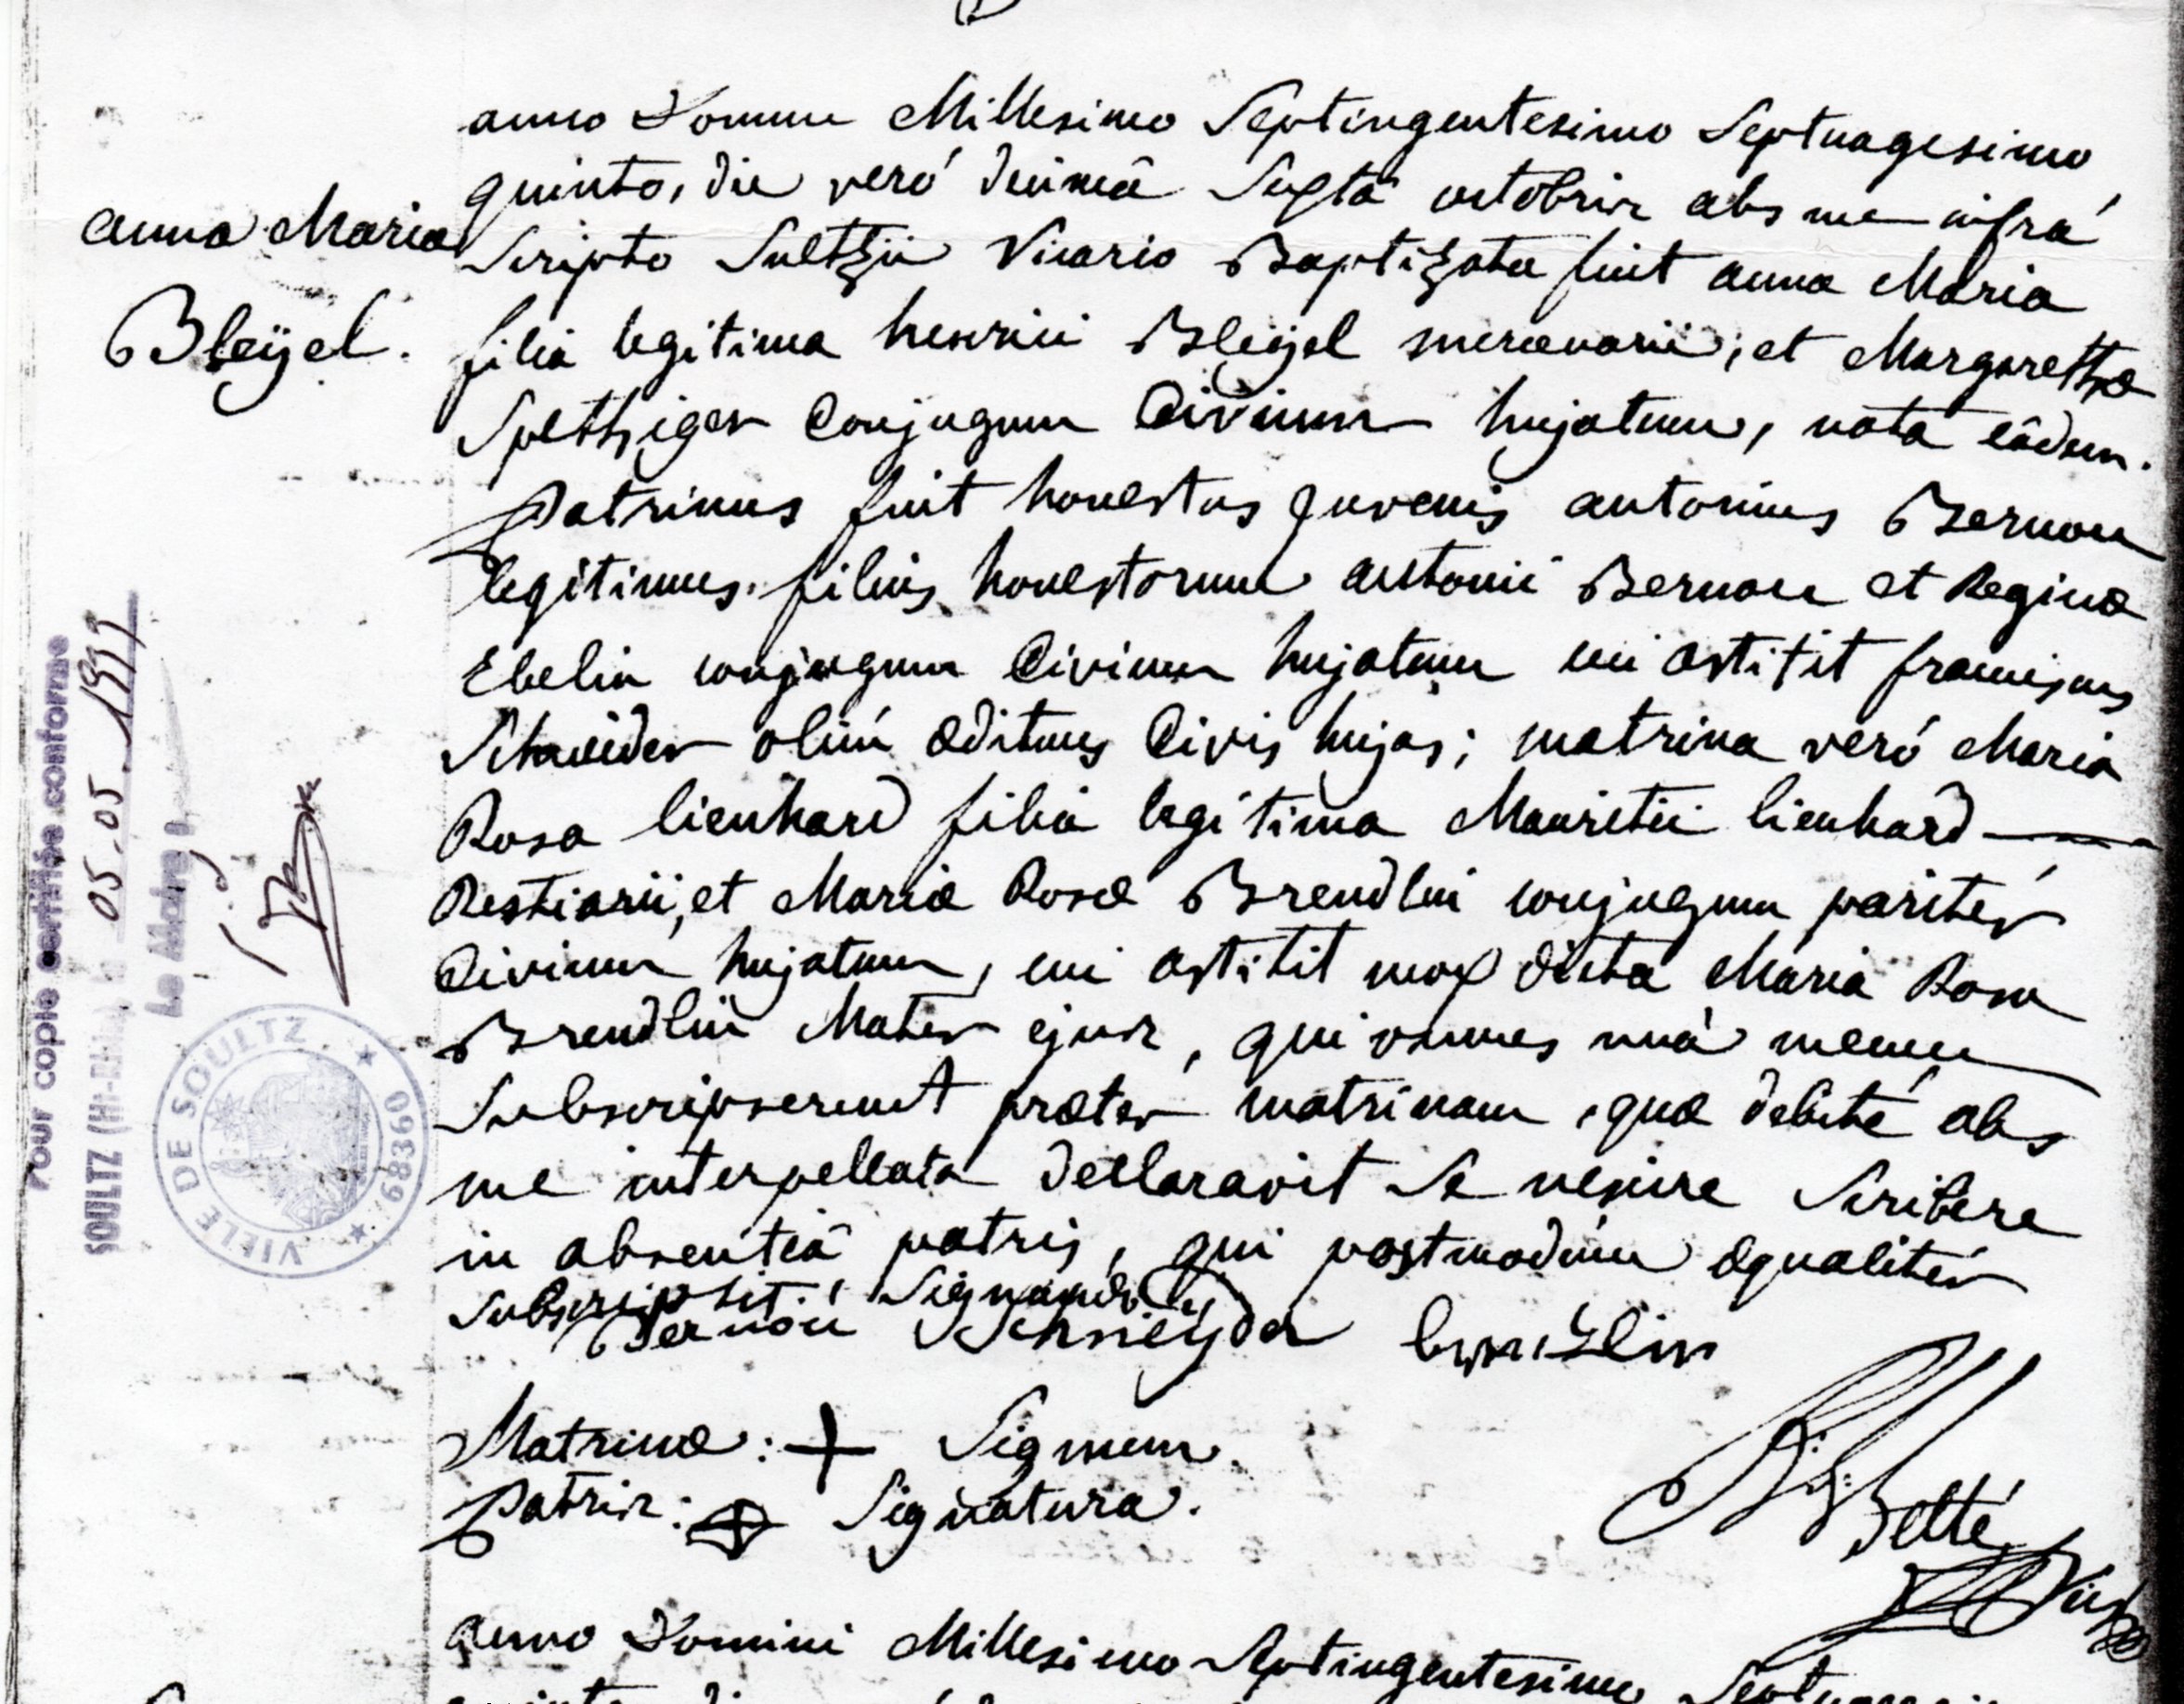 anno Domini Millesimo Septingentesimo Septuagesimo
quinto, die veró decimâ Sextâ octobris abs me infrá
anna Maria
Scripto Sultzii Vicario Baptizata fuit anna Maria
Bleÿel.
filia legitima henrici Bleÿel mercenarii, et Margarethæ
Spethiger Conjugum Civium hujatum, nata eâdem.
Patrinus fuit honestus Juvenis antonius Bernou
legitimus filius honestorum antonii Bernou et Reginæ
Ebelin conjugum Civium hujatum cui astitit franciscus
Schneider olim ædituus Civis hujas; matrina veró Maria
Rosa lienhard filia legitima Mauritii lienhard
Restiarii, et Mariæ Rosæ Brendlin conjugum pariter
Civium hujatum, cui astitit mox dicta Maria Rosa
Brendlin Mater ejus, qui omnes unà mecum
Subscripserunt præter matrinam, quæ debité abs
me interpellata declaravit Se nescire Scribere
in absentiâ patris, qui postmodum æqualiter
Subscripsit. Signando
Bernou Schneÿder
Matrinæ: + Signum.
Patris: Signatura.
Betté
Vic
anno Domini Millesimo Septingentesimo
Pour copie certifiée conforme
SOULTZ (Ht-Rhin) le 05.05.1999
Le Maire
VILLE DE SOULTZ ★ 68360 ★